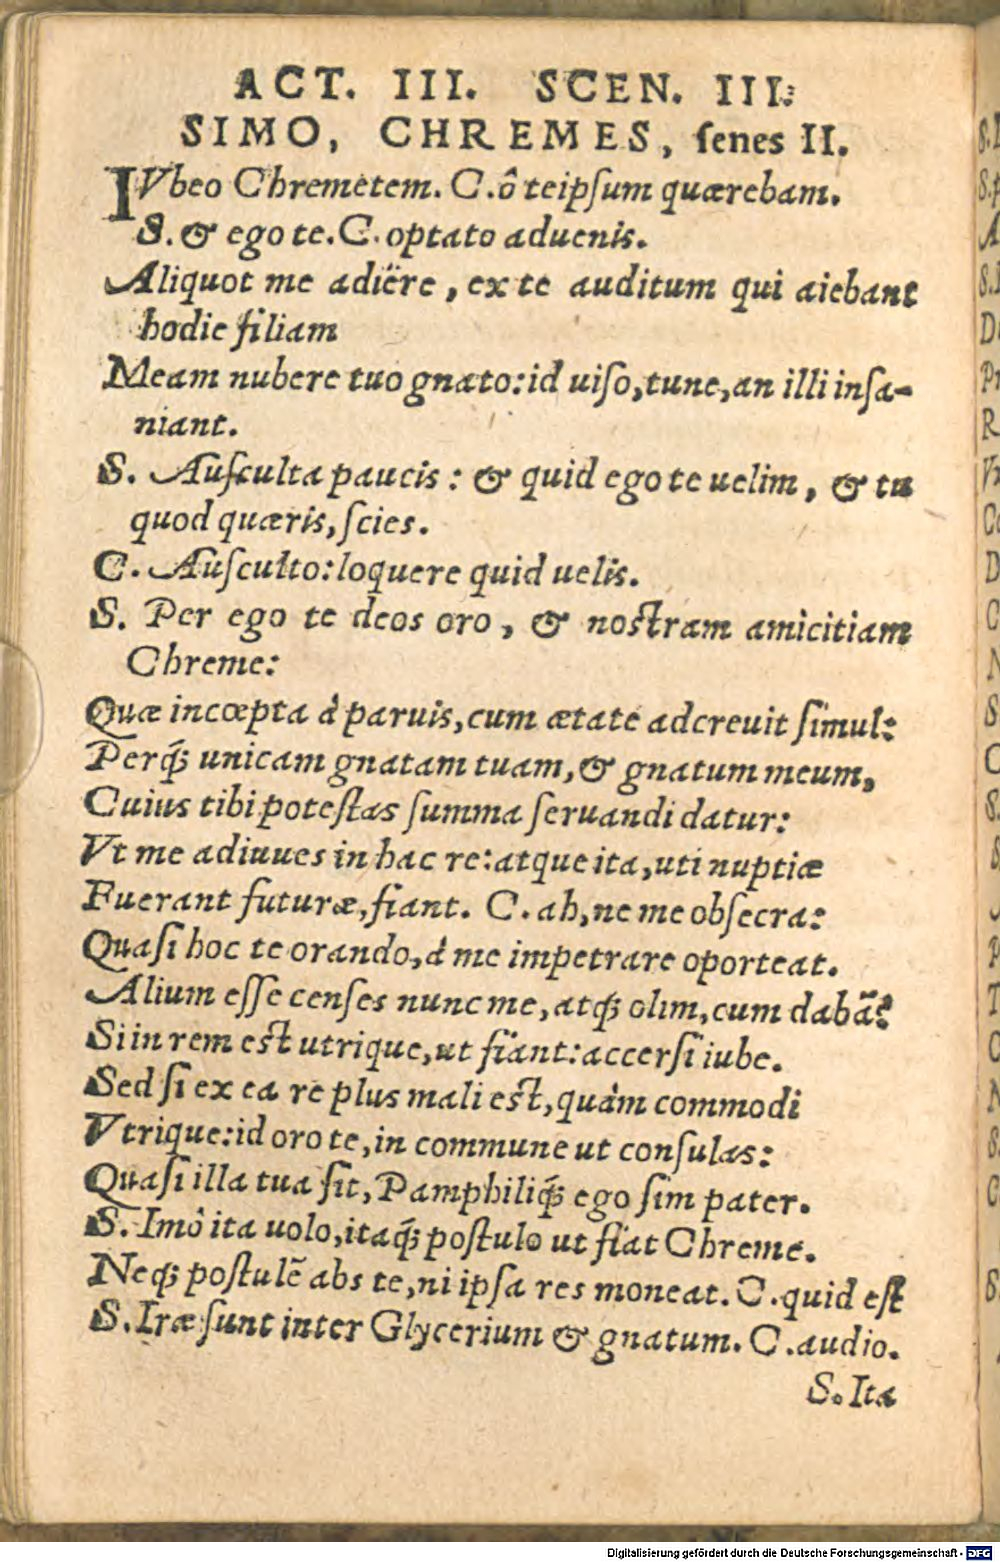 ACT. III. SCEN. III.
SIMO, CHREMES, ſenes II.
IVbeo Chremetem. C.ô teipſum quærebam.
S. & ego te. C. optato aduenis.
Aliquot me adiëre, ex te auditum qui aiebant
hodie filiam
Meam nubere tuo gnato: id uiſo, tune, an illi inſa-
niant.
S. Auſculta paucis: & quid ego te uelim, & tu
quod quæris, ſcies.
C. Auſculto: loquere quid uelis.
S. Per ego te deos oro, & noſtram amicitiam
Chreme:
Quæ incœpta à paruis, cum ætate adcreuit ſimul:
Perq́; unicam gnatam tuam, & gnatum meum,
Cuius tibi poteſtas ſumma ſeruandi datur:
Vt me adiuues in hac re: atque ita, uti nuptiæ
Fuerant futuræ, fiant. C. ah, ne me obſecra:
Quaſi hoc te orando, à me impetrare oporteat.
Alium eſſe cenſes nunc me, atq́; olim, cum dabā?
Si in rem eſt utrique, ut fiant: accerſi iube.
Sed ſi ex ea re plus mali eſt, quàm commodi
Vtrique: id oro te, in commune ut conſulas:
Quaſi illa tua ſit, Pamphiliq́; ego ſim pater.
S. Imò ita uolo, itaq́; poſtulo ut fiat Chreme.
Neq́; poſtulē abs te, ni ipſa res moneat. C. quid eſt
S. Iræ ſunt inter Glycerium & gnatum. C. audio.
S. Ita
Digitalisierung gefördert durch die Deutsche Forschungsgemeinschaft - DFG